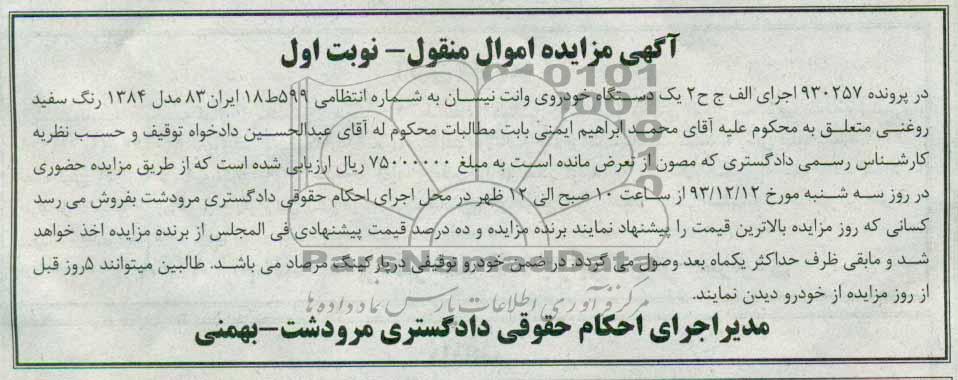 آگهی مزایده اموال منقول - نوبت اول
در پرونده ۹۳۰۲۵۷ اجرای الف ج ح۲ یک دستگاه خودروی وانت نیسان به شماره انتظامی ۵۹۹ط۱۸ ایران۸۳ مدل ۱۳۸۴ رنگ سفید
روغنی متعلق به محکوم علیه آقای محمد ابراهیم ایمنی بابت مطالبات محکوم له آقای عبدالحسین دادخواه توقیف و حسب نظریه
کارشناس رسمی دادگستری که مصون از تعرض مانده است به مبلغ ۷۵۰۰۰۰۰۰ ریال ارزیابی شده است که از طریق مزایده حضوری
در روز سه شنبه مورخ ۹۳/۱۲/۱۲ از ساعت ۱۰ صبح الی ۱۲ ظهر در محل اجرای احکام حقوقی دادگستری مرودشت بفروش می رسد
کسانی که روز مزایده بالاترین قیمت را پیشنهاد نمایند برنده مزایده و ده درصد قیمت پیشنهادی فی المجلس از برنده مزایده اخذ خواهد
شد و مابقی ظرف حداکثر یکماه بعد وصول می گردد. در ضمن خودرو توقیفی درپارکینگ مرصاد می باشد. طالبین میتوانند ۵روز قبل
از روز مزایده از خودرو دیدن نمایند.
مدیراجرای احکام حقوقی دادگستری مرودشت-بهمنی
ParsNamadData
مرکز فرآوری اطلاعات پارس نماد داده ها